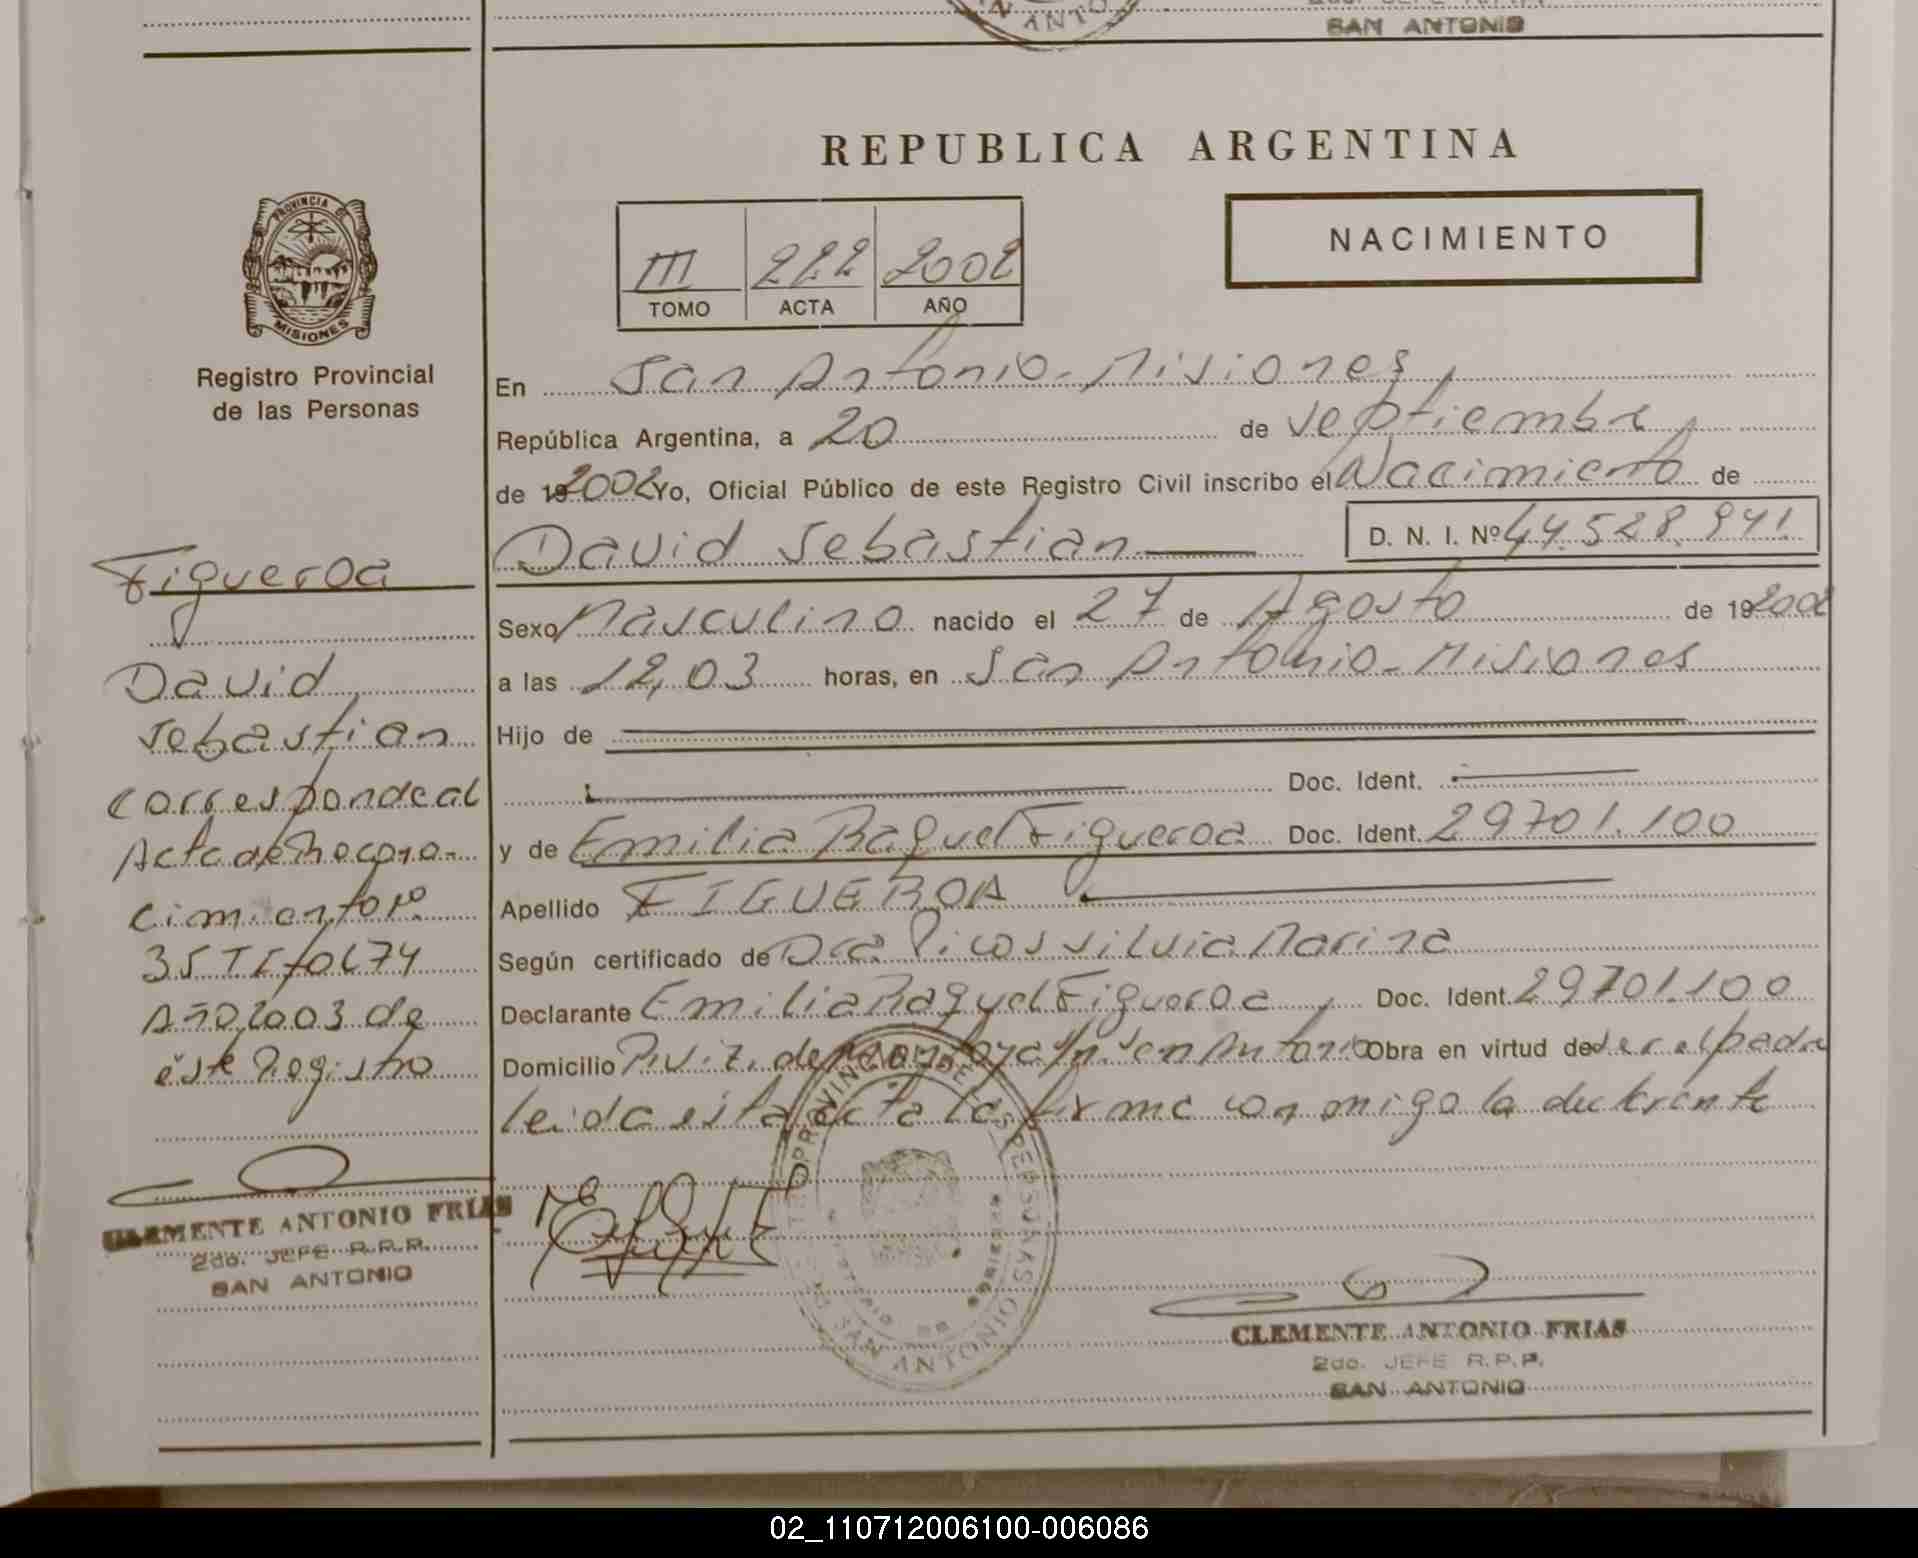 SAN ANTONIO
REPUBLICA ARGENTINA
PROVINCIA DE
MISIONES
Registro Provincial
de las Personas
III 222 2002
TOMO ACTA AÑO
NACIMIENTO
En San Antonio - Misiones
República Argentina, a 20 de septiembre
de 19 2002 Yo, Oficial Público de este Registro Civil inscribo el Nacimiento de
David Sebastian D. N. I. Nº 44.528.941
Sexo Masculino nacido el 27 de Agosto de 19 2002
a las 12,03 horas, en San Antonio - Misiones
Hijo de
Doc. Ident.
y de Emilia Raquel Figueroa Doc. Ident. 29701.100
Apellido FIGUEROA
Según certificado de Dra Picos Silvia Marina
Declarante Emilia Raquel Figueroa Doc. Ident. 29701.100
Domicilio Ruiz de Montoya S/n San Antonio Obra en virtud de ser el padre
leida esta acta la firma conmigo la declarante
Figueroa
David
Sebastian
Corresponde al
Acta de Reconocimiento Nº
35 T I folº 74
Año 2003 de
éste Registro
CLEMENTE ANTONIO FRIAS
2do. JEFE R.P.P.
SAN ANTONIO
SAN ANTONIO
CLEMENTE ANTONIO FRIAS
2do. JEFE R.P.P.
SAN ANTONIO
02_110712006100-006086